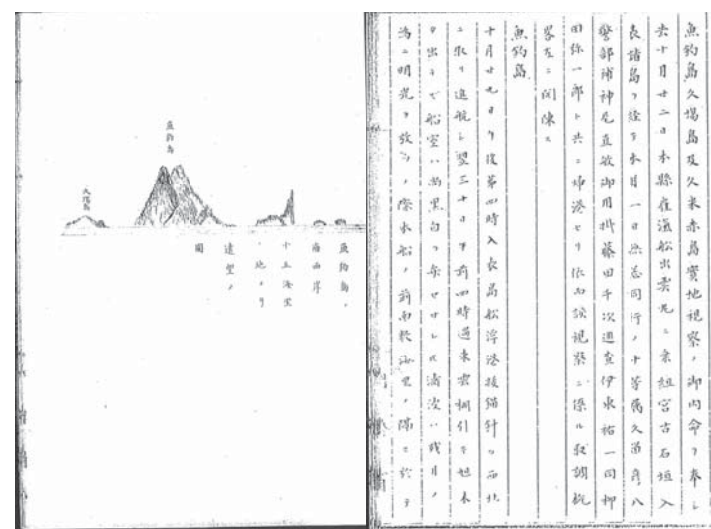 魚釣島久場島及久米赤島實地視察ノ御内命ヲ奉シ
去十月廿二日本縣雇滊船出雲丸ニ乗組宮古石垣入
表諸島ヲ経テ本月一日
警部補神尾直敏御用掛藤田千次巡査伊東祐一同柳
田弥一郎ト共ニ帰港セリ依而該視察ニ係ル取調概
畧左ニ開陳ス
魚釣島
十月廿九日午後第四時入表島船浮港抜錨針ヲ西北
ニ取リ進航シ翌三十日午前四時過東雲棚引キ
出テ船室ハ尚黒白ヲ弁セサレ
為ニ明光ヲ放ツノ際本船ノ前面數海里ヲ隔テ於テ
魚釣島
久場島
魚釣島ノ
南西岸
十五海里
ノ地ヨリ
遠望ノ
圖